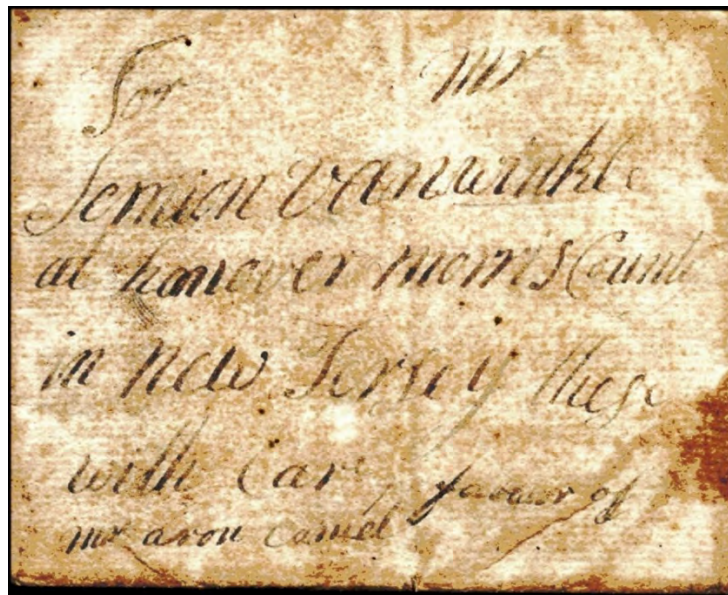 For mr
Semion vanwinkle
at hanover morris Count
in new Jersey these
with Car favour of
mr aron camel